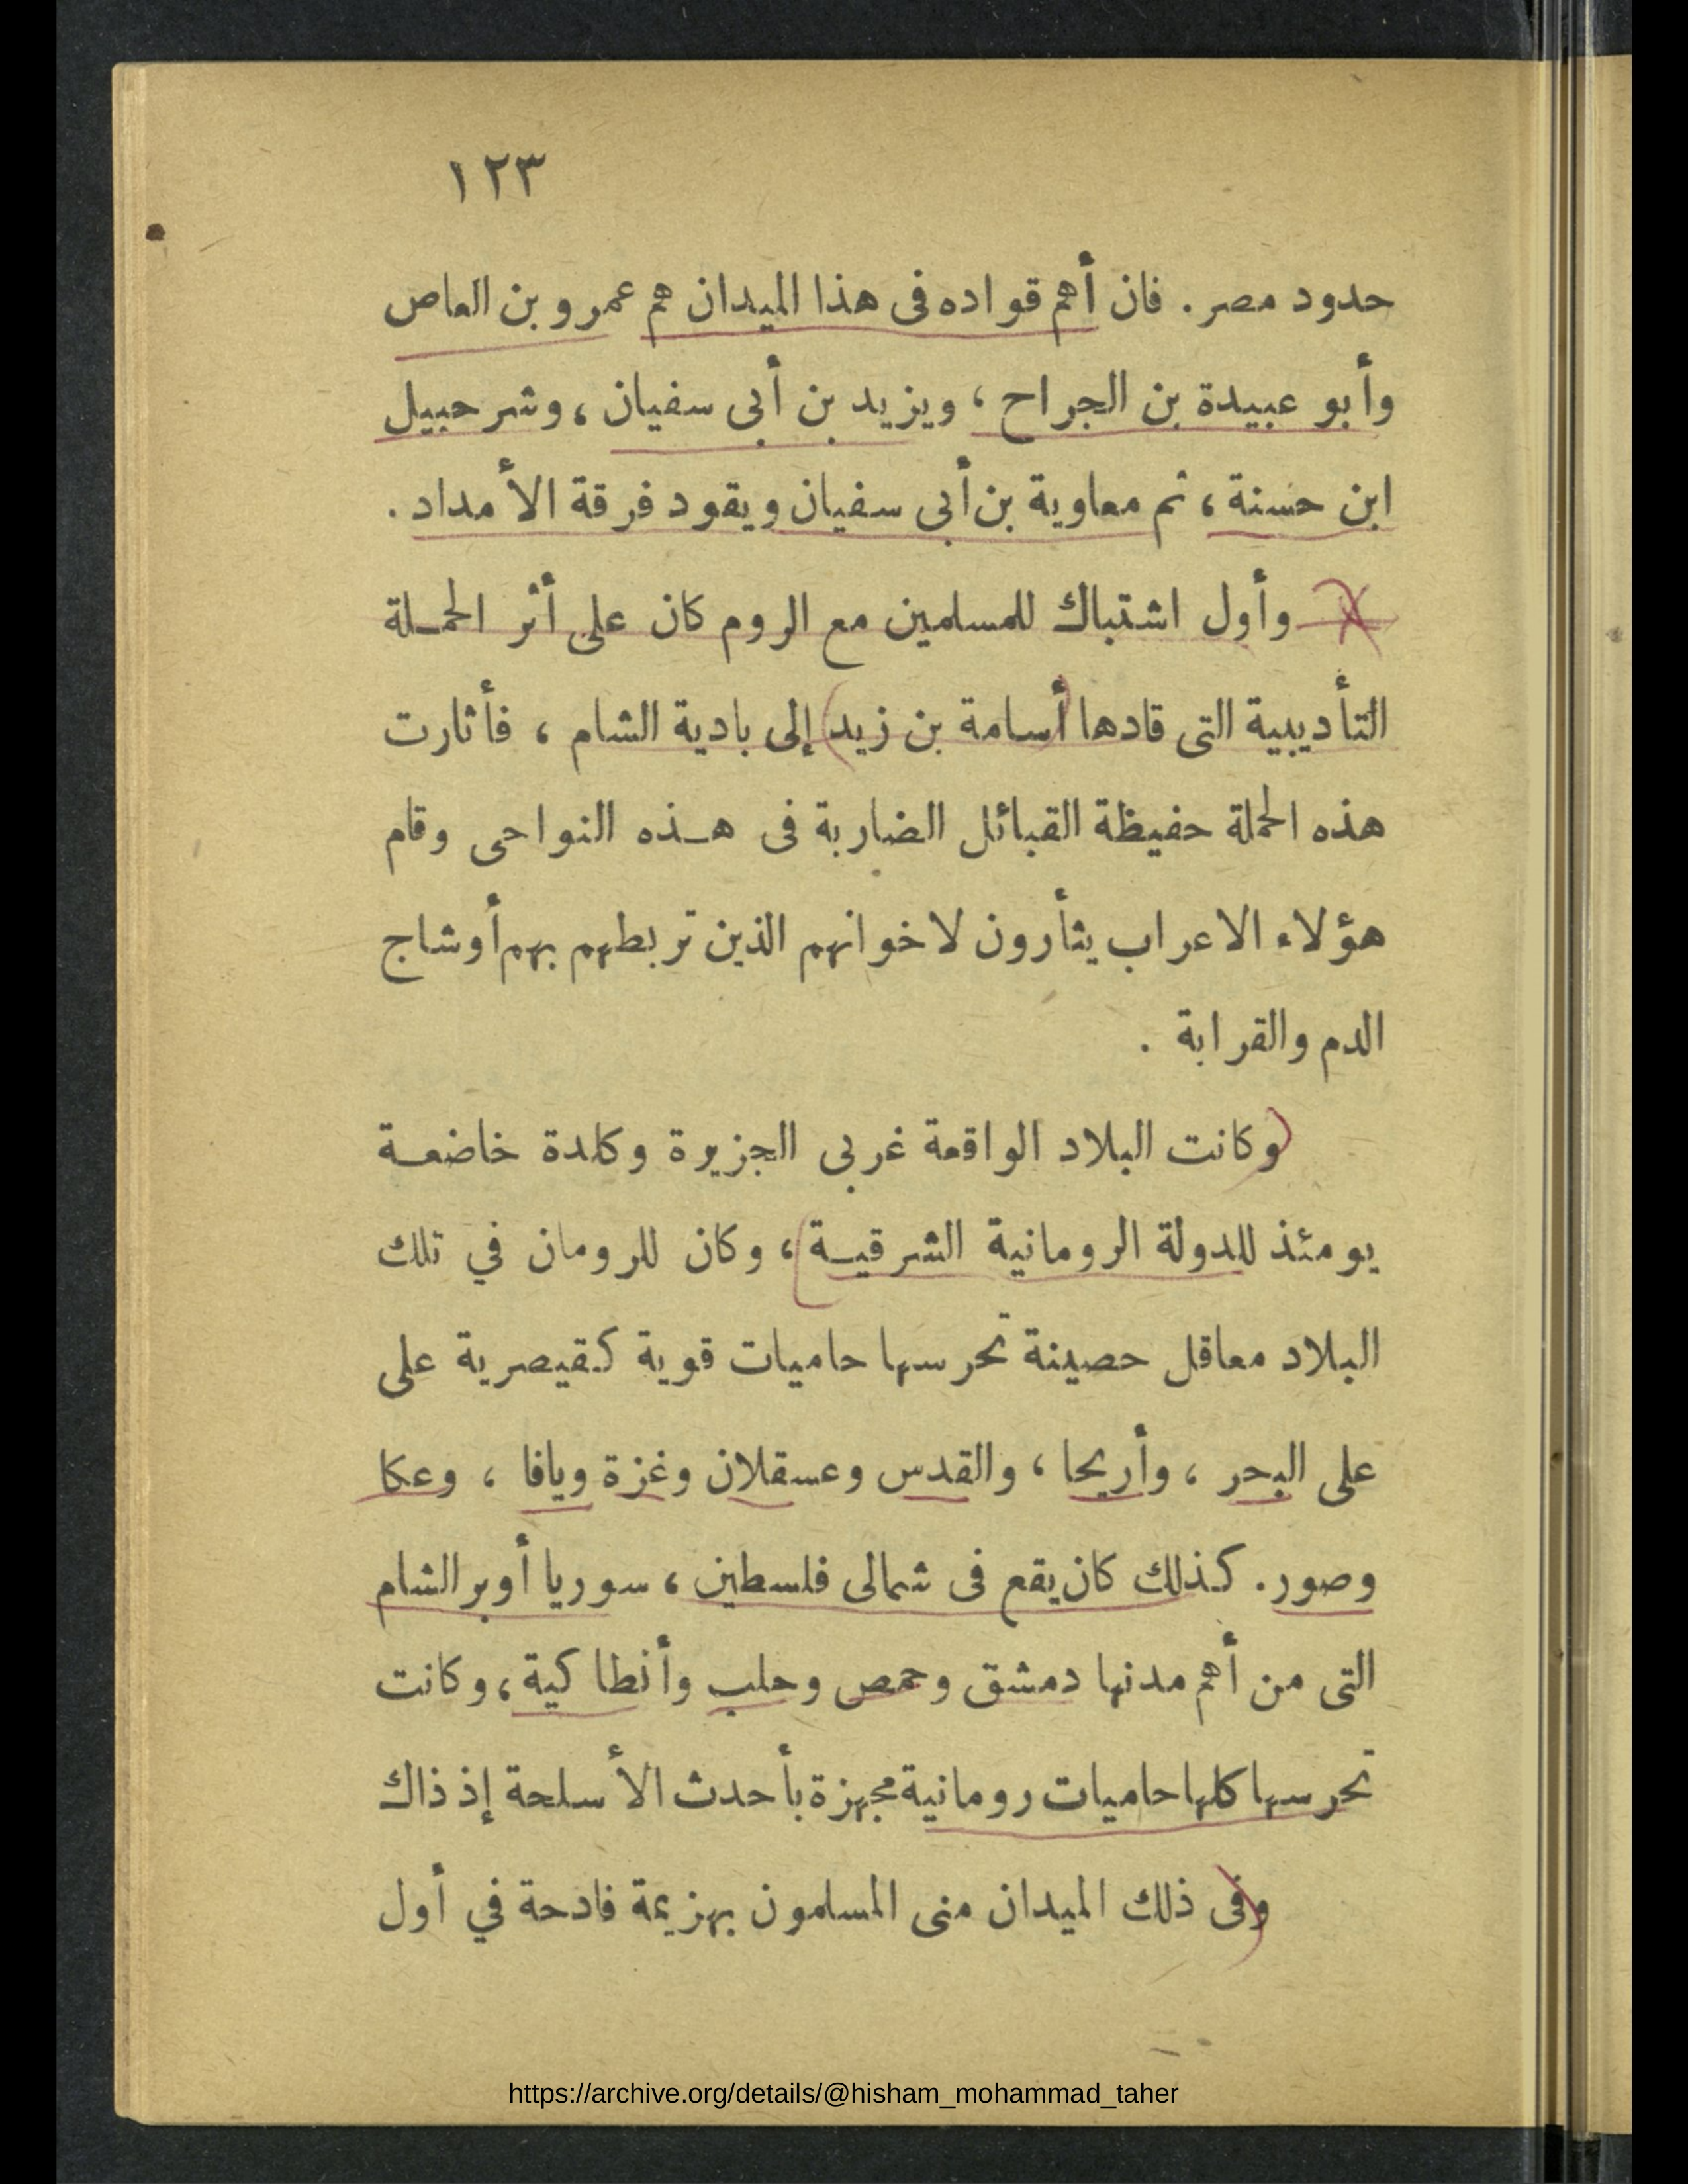 ١٢٣
حدود مصر . فان أهم قواده فى هذا الميدان هم عمرو بن العاص
وأبو عبيدة بن الجراح ، ويزيد بن أبى سفيان ، وشرحبيل
ابن حسنة ، ثم معاوية بن أبى سفيان ويقود فرقة الأمداد .
وأول اشتباك للمسلمين مع الروم كان على أثر الحمـلة
التأديبية التى قادها أسامة بن زيد إلى بادية الشام ، فأثارت
هذه الحملة حفيظة القبائل الضاربة فى هـذه النواحى وقام
هؤلاء الاعراب يثأرون لاخوانهم الذين تربطهم بهم أوشاج
الدم والقرابة .
وكانت البلاد الواقعة غربى الجزيرة وكلدة خاضعـة
يومئذ للدولة الرومانية الشرقيـة ، وكان للرومان في تلك
البلاد معاقل حصينة تحرسها حاميات قوية كقيصرية على
على البحر ، وأريحا ، والقدس وعسقلان وغزة ويافا ، وعكا
وصور . كذلك كان يقع فى شمالى فلسطين ، سوريا أوبر الشام
التى من أهم مدنها دمشق وحمص وحلب وأنطاكية ، وكانت
تحرسها كلها حاميات رومانية مجهزة بأحدث الأسلحة إذ ذاك
وفى ذلك الميدان منى المسلمون بهزيمة فادحة في أول
https://archive.org/details/@hisham_mohammad_taher